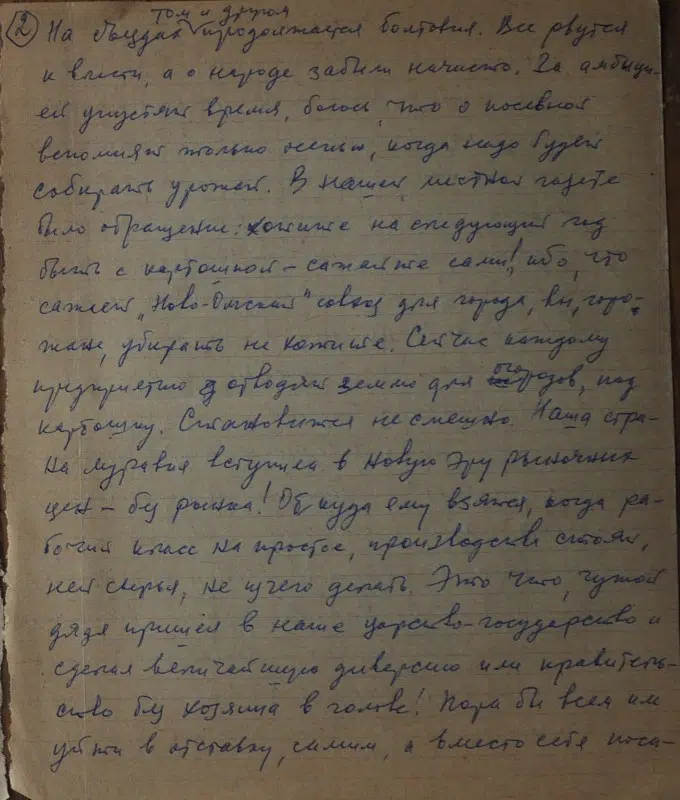 том и другом
② На съездах продолжается болтовня. Все рвутся
к власти, а о народе забыли начисто. За амбици-
ей упустят время, боюсь, что о посевной
вспомнят только осенью, когда надо будет
собирать урожай. В нашей местной газете
было обращение: хотите на следующий год
быть с картошкой – сажайте сами!, ибо, что
сажает „Ново-Омский" совхоз для города, вы, горо-
жане, убирать не хотите. Сейчас каждому
предприятию отводят землю для огородов, под
картошку. Становится не смешно. Наша стра-
на муравия вступила в новую эру рыночных
цен – без рынка! Откуда ему взятся, когда ра-
бочий класс на простое, производства стоят,
нет сырья, не из чего делать. Это что, чужой
дядя пришёл в наше царство-государство и
сделал величайшую диверсию или правитель-
ство без хозяина в голове! Пора бы всем им
уйти в отставку, самим, а вместо себя поса-